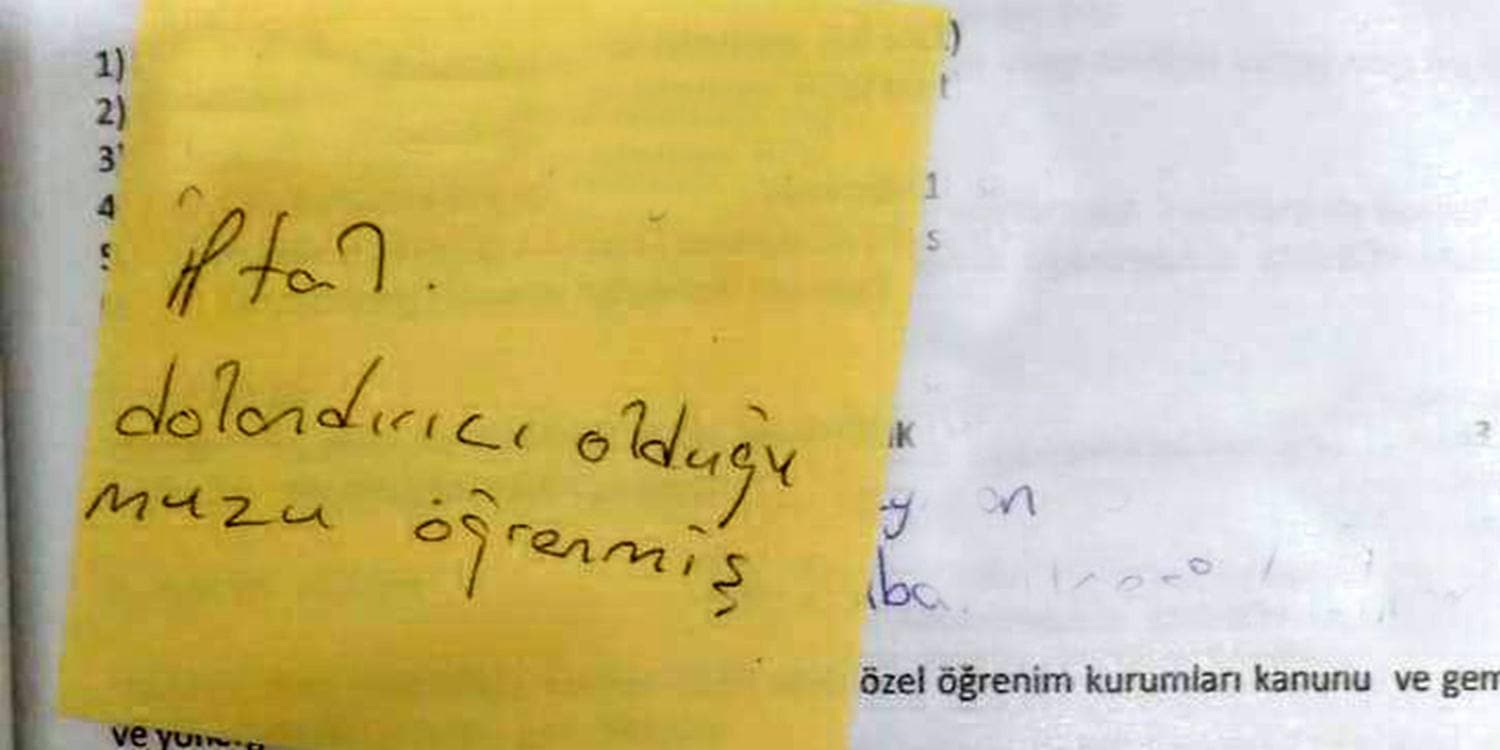 1)
2)
3
4
5
1
s
İptal.
dolandırıcı olduğu
muzu öğrenmiş
özel öğrenim kurumları kanunu ve